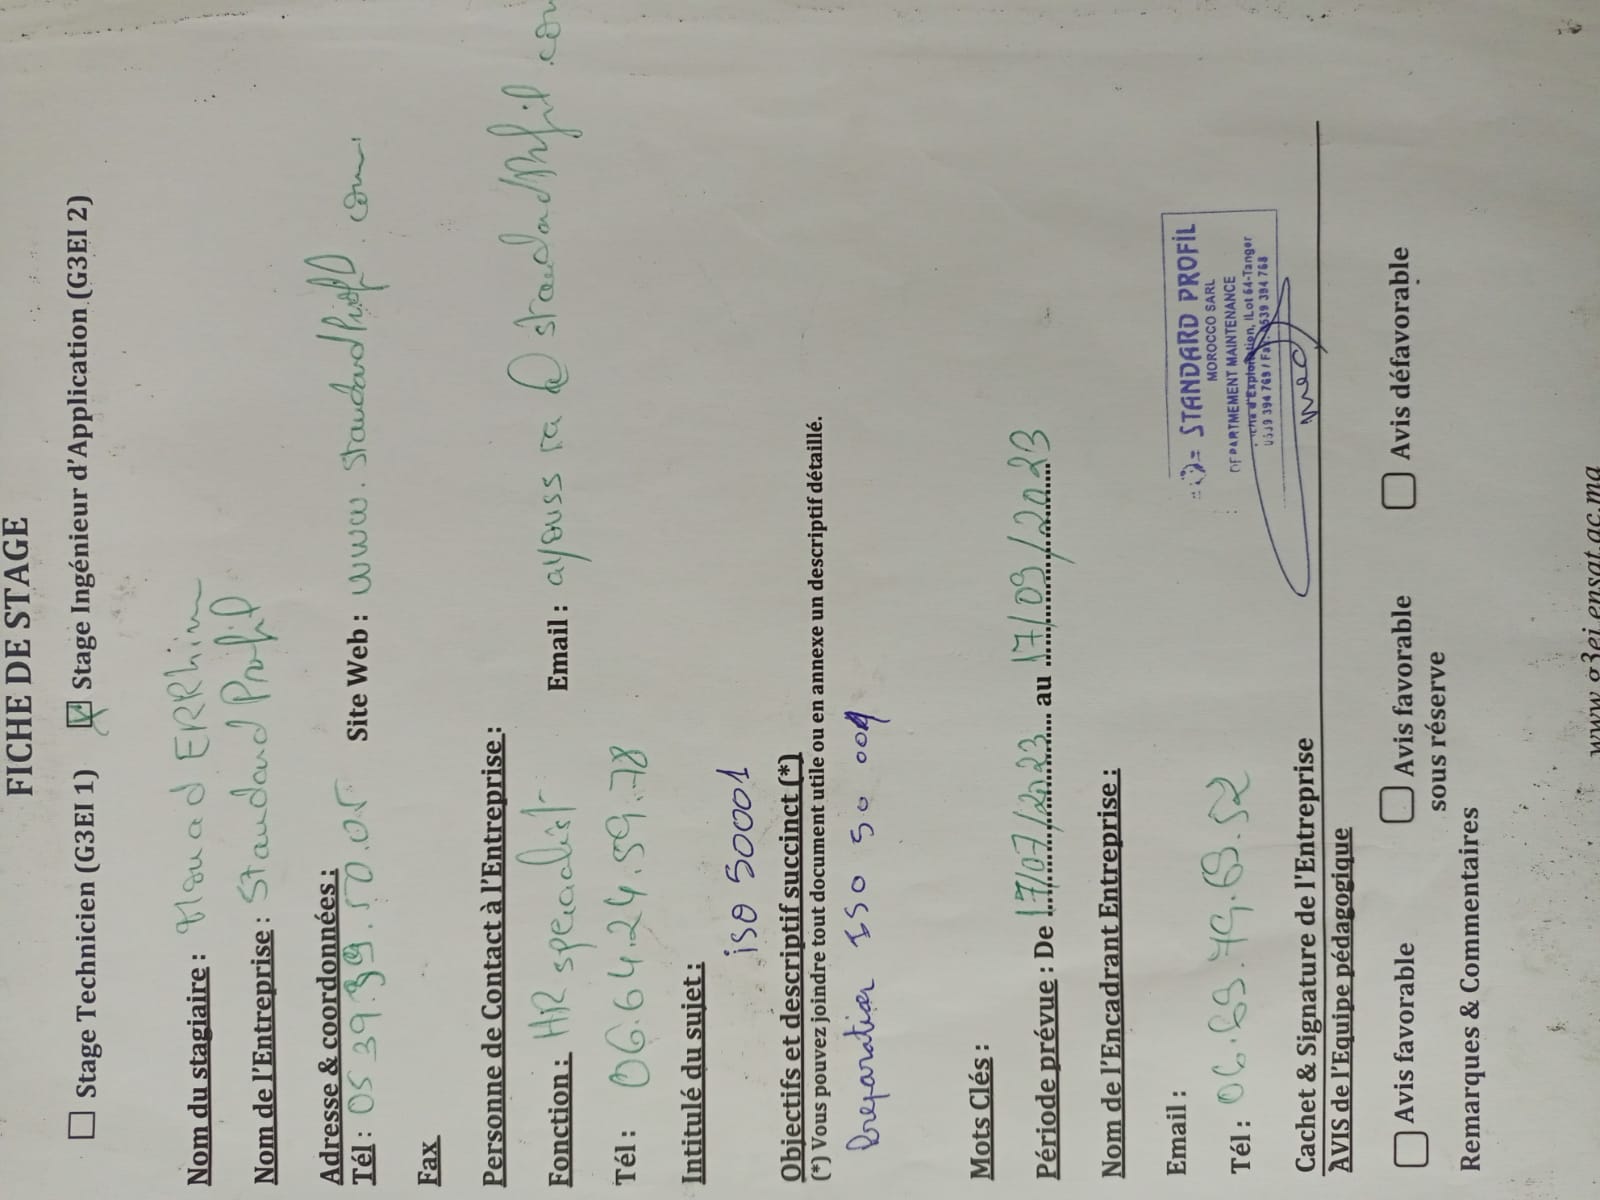 FICHE DE STAGE
Stage Technicien (G3EI 1) Stage Ingénieur d'Application (G3EI 2)
Nom du stagiaire : Mouad ERRhim
Nom de l'Entreprise : Standard Profil
Adresse & coordonnées :
Tél : 05 39.39.50.05 Site Web : www.standardProfil.com
Fax
Personne de Contact à l'Entreprise :
Fonction : HR specialist
Email : ayoussra@standardprofil.com
Tél : 06.64.24.59.78
Intitulé du sujet :
iso 50001
Objectifs et descriptif succinct (*)
(*) Vous pouvez joindre tout document utile ou en annexe un descriptif détaillé.
Preparation ISO 50 001
Mots Clés :
Période prévue : De 17/07/2023 au 17/09/2023
Nom de l'Encadrant Entreprise :
Email :
Tél : 06.69.79.69.52
STANDARD PROFIL
MOROCCO SARL
DEPARTMEMENT MAINTENANCE
d'Exploitation, ILot 64-Tanger
0539 394 769 / Fax: 0539 394 768
Cachet & Signature de l'Entreprise
AVIS de l'Equipe pédagogique
Avis favorable Avis favorable sous réserve Avis défavorable
Remarques & Commentaires
www.g3ei.ensat.ac.ma